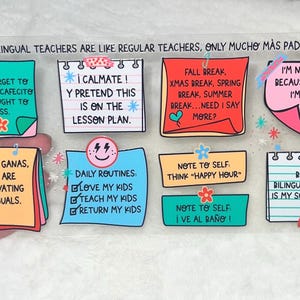 LINGUAL TEACHERS ARE LIKE REGULAR TEACHERS, ONLY MUCHO MÁS PAD
RGET TO
CAFECITO
UGHT TO
SS.
¡CALMATE!
Y PRETEND THIS
IS ON THE
LESSON PLAN.
FALL BREAK,
XMAS BREAK, SPRING
BREAK, SUMMER
BREAK...NEED I SAY
MORE?
I'M N
BECAU
I'M
GANAS,
ARE
VATING
UALS.
DAILY ROUTINES:
LOVE MY KIDS
TEACH MY KIDS
RETURN MY KIDS
NOTE TO SELF:
THINK "HAPPY HOUR"
NOTE TO SELF:
¡VE AL BAÑO!
B
BILINGU
IS MY S